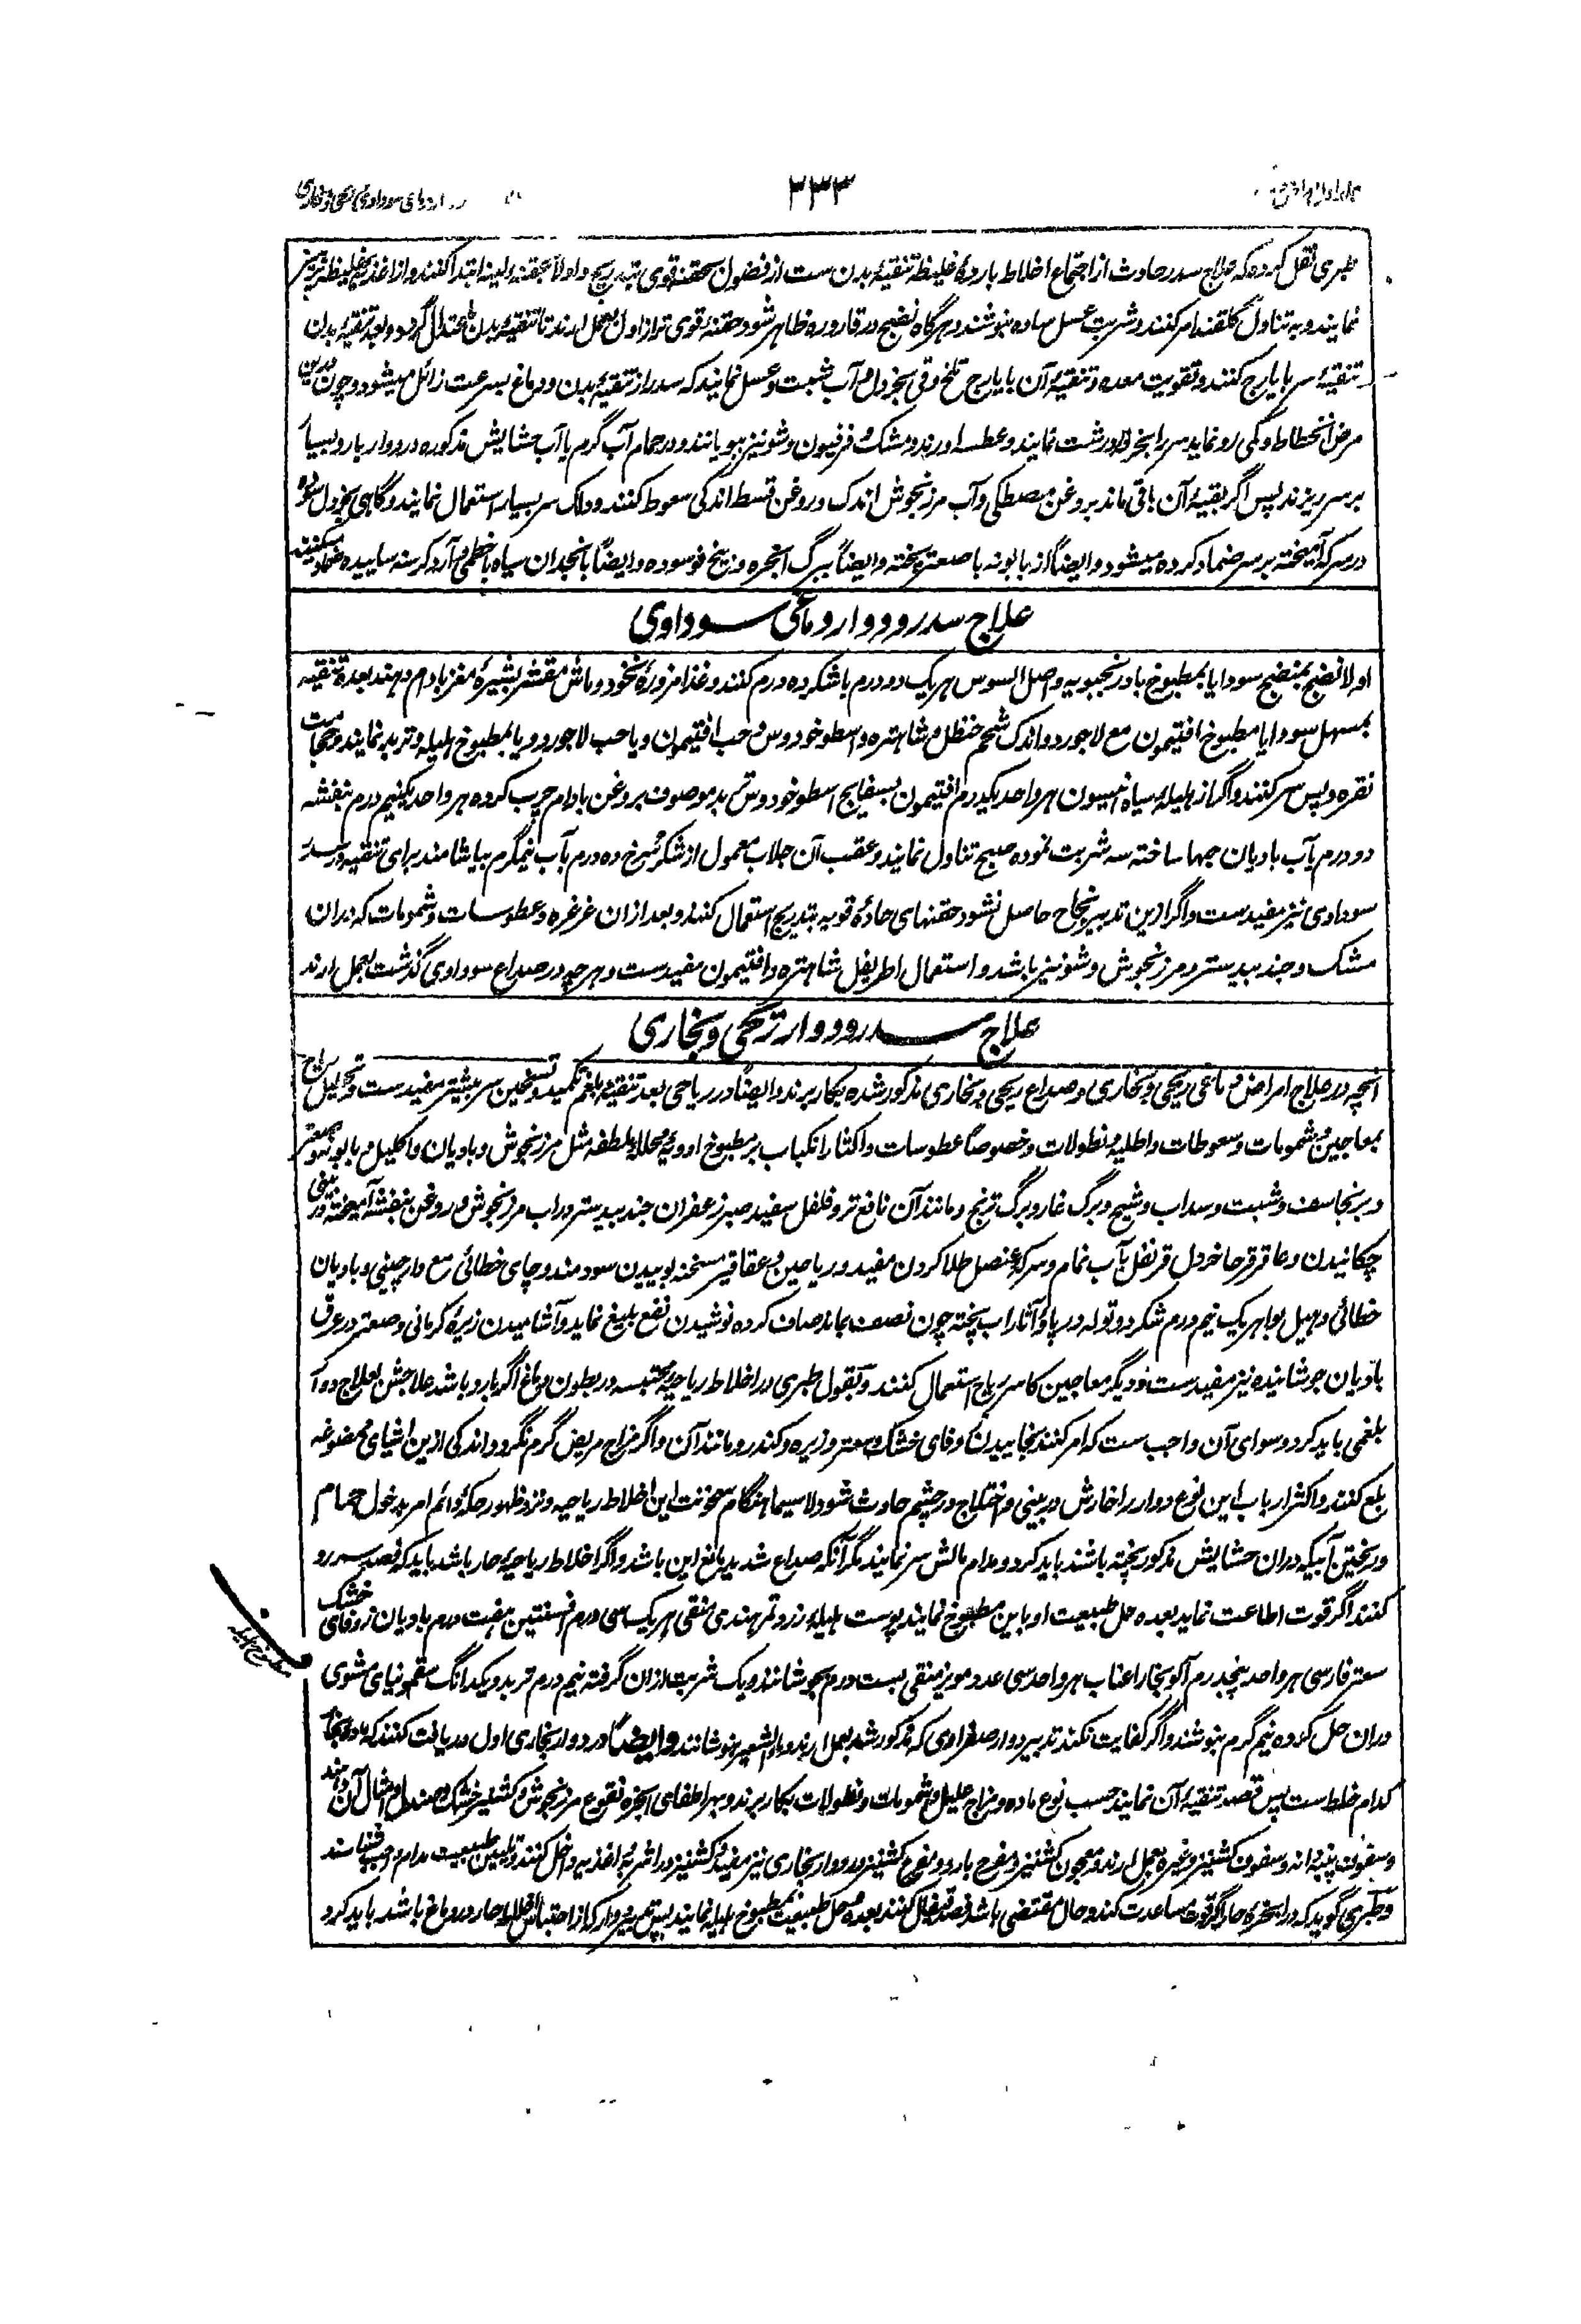 ۳۳۳
طبری نقل کرده که علاج سدر حادث از اجتماع اخلاط بارده غلیظه تنقیهٔ بدن ست از فضول بحقنه قوی بتدریج و اولاً بحقنه لینه ابتدا کنند و از اغذیه غلیظه پرهیز
نمایند و به تناول گلقند امر کنند و شربت عسل ساده بنوشند و هرگاه نضج در قاروره ظاهر شود حقنهٔ قوی تر از اول بعمل آرند تا تنقیهٔ بدن باعتدال گردد و بعد تنقیهٔ بدن
تنقیهٔ سر بایارج کنند و تقویت معده و تنقیهٔ آن بایارج تلخ و قی بخردل و آب شبت و عسل نمایند که سدر از تنقیهٔ بدن و دماغ بسرعت زائل میشود و چون درین
مرض انحطاط و کمی رو نماید سر را بخرقه درشت نمایند و عطسه آورند و مشک و فرفیون و شونیز ببویانند و در حمام آب گرم یا آب حشایش مذکوره در دوار بارد بسیار
بر سر ریزند پس اگر بقیهٔ آن باقی ماند بروغن مصطکی و آب مرزنجوش اندک و روغن قسط اندکی سعوط کنند و دلک سر بسیار استعمال نمایند و گاهی بخردل سوده
در سرکه آمیخته بر سر ضماد کرده میشود و ایضاً از بابونه با صعتر پخته و ایضاً ببرگ انجره و زرنیخ فرسوده و ایضاً بانجدان سیاه با خطمی و آرد کرسنه ساییده ضماد میکنند
علاج سدر و دوار دماغی سوداوی
اولا نضج بمنضج سودا یا بمطبوخ بادرنجبویه و اصل السوس هریک دو درم با شکر ده درم کنند و غذا مزورهٔ نخود و ماش مقشر بشیرهٔ مغز بادام دهند بعده تنقیه
بمسهل سودا یا مطبوخ افتیمون مع لاجورد و اندک شحم حنظل و شاهتره و اسطوخودوس و حب افتیمون و یا حب لاجورد و یا بمطبوخ هلیله و تربد نمایند و حجامت
نقره و پس سر کنند و اگر از هلیلهٔ سیاه انیسون هر واحد یکدرم افتیمون بسفایج اسطوخودوس تربد موصوف بروغن بادام چرب کرده هر واحد یکنیم درم بنفشه
دو درم بآب بادیان حبها ساخته سه شربت نموده صبح تناول نمایند و عقب آن جلاب معمول از شکر سرخ ده درم بآب نیمگرم بیاشامند برای تنقیه در سدر
سوداوی نیز مفید ست و اگر ازین تدبیر نجاح حاصل نشود حقنهای حادهٔ قویه بتدریج استعمال کنند و بعد ازان غرغره و عطوسات و شمومات که دران
مشک و جندبیدستر و مرزنجوش و شونیز باشد و استعمال اطریفل شاهتره و افتیمون مفید ست و هرچه در صداع سوداوی گذشت بعمل آرند
علاج سدر و دوار ریحی و بخاری
آنچه در علاج امراض دماغی ریحی و بخاری و صداع ریحی و بخاری مذکور شده بکار برند و ایضاً در ریاحی بعد تنقیهٔ بلغم تکمید و تسخین سر بیشتر مفید ست و تحلیل ریاح
بمعاجین و شمومات و سعوطات و اطلیه و نطولات و خصوصاً عطوسات و اکثار انکباب بر مطبوخ ادویهٔ محللهٔ ملطفه مثل مرزنجوش و بادیان و اکلیل و بابونه و صعتر
و برنجاسف و شبت و سداب و شیح و برگ غار و برگ ترنج و مانند آن نافع تر و فلفل سفید صبر زعفران جندبیدستر در آب مرزنجوش و روغن بنفشه آمیخته در بینی
چکانیدن و عاقرقرحا خردل قرنفل بآب نمام و سرکهٔ عنصل طلا کردن مفید و ریاحین و عقاقیر مسخنه بوییدن سودمند و چای خطائی مع دارچینی و بادیان
خطائی و هیل بوا هریک نیم درم شکر دو توله در پاؤ آثار آب پخته چون نصف بماند صاف کرده نوشیدن نفع بلیغ نماید و آشامیدن زیرهٔ کرمانی و صعتر در عرق
بادیان جوشانیده نیز مفید ست و دیگر معاجین کاسر ریاح استعمال کنند و بقول طبری در اخلاط ریاحیه محتبسه در بطون دماغ اگر بارد باشد علاجش بعلاج دوار
بلغمی باید کرد و سوای آن واجب ست که امر کنند بخاییدن زوفای خشک و صعتر و زیره و کندر و مانند آن و اگر مزاج مریض گرم نگردد و اندکی ازین اشیای ممضوغه
بلع کنند و اکثر ارباب این نوع دوار را خارش در بینی و اختلاج در چشم حادث شود لاسیما هنگام سخونت این اخلاط ریاحیه و نزد ظهور حکه دائم امر بدخول حمام
و ریختن آبیکه دران حشایش مذکور پخته باشند باید کرد و مدام مالش سر نمایند مگر آنکه صداع شدید مانع این باشد و اگر اخلاط ریاحیهٔ حار باشد باید که فصد سر رو
کنند اگر قوت اطاعت نماید بعده حل طبیعت او باین مطبوخ نمایند پوست هلیلهٔ زرد تمر هندی منقی هریک سی درم افسنتین هفت درم بادیان زوفای خشک
سعتر فارسی هر واحد پنجدرم آلو بخارا عناب هر واحد سی عدد مویز منقی بست درم بجوشانند و یک شربت ازان گرفته نیم درم تربد و یکدانگ سقمونیای مشوی
دران حل کرده نیم گرم بنوشند و اگر کفایت نکند تدبیر دوار صفراوی که مذکور شد بعمل آرند و ماء الشعیر بنوشانند و ایضاً در دوار بخاری اول دریافت کنند که مادهٔ بخار
کدام خلط ست پس قصد تنقیهٔ آن نمایند حسب نوع ماده و مزاج علیل و شمومات و نطولات بکار برند و بهر اطفای ابخره نقوع مرزنجوش و کشنیز خشک و صندل و امثال آن دهند
و سفوف پنبه دانه و سفوف کشنیز و غیره بعمل آرند و معجون کشنیز و مفرح بارد و مفرح کشنیز در دوار بخاری نیز مفید و کشنیز در اشربه و اغذیه داخل کنند و تلیین طبیعت مدام واجب شناسند
و طبری گوید که در ابخرهٔ حار اگر قوت مساعدت کند و حال مقتضی باشد فصد قیفال کنند بعده حل طبیعت بمطبوخ هلیله نمایند پس تدبیر دوار که از احتباس اخلاط حار در دماغ باشد باید کرد
مطبوخ هلیله